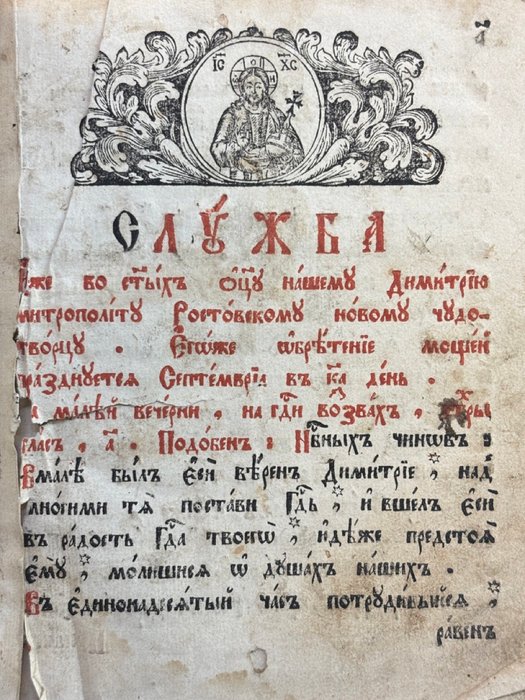 а҃
ІС ХС
СЛꙊ́ЖБА
И҆́же во ст҃ы́хъ ѻ҆ц҃ꙋ̀ на́шемꙋ Дими́трїю
митрополі́тꙋ Росто́вскомꙋ но́вомꙋ чꙋдо-
тво́рцꙋ . Е҆гѡ́же ѡ҆брѣ́тенїе моще́й
пра́зднꙋется Септе́мврїа въ к҃а де́нь .
На ма́лѣй вече́рни , на гд҇и воззва́хъ ,
гла́съ . а҃ . Подо́бенъ : Нб҇ныхъ чинѡ́въ :
Вма́лѣ бы́лъ є҆сѝ вѣ́ренъ Дими́трїе , над̾
мно́гими тѧ̀ поста́ви Гд҇ь , и҆ вше́лъ є҆сѝ
въ ра́дость Гд҇а твоегѡ̀ , и҆дѣ́же предстоѧ̀
є҆мꙋ̀ , моли́шисѧ ѡ҆ дꙋша́хъ на́шихъ .
Въ є҆динонадесѧ́тый ча́съ потрꙋди́выйсѧ ,
ра́венъ